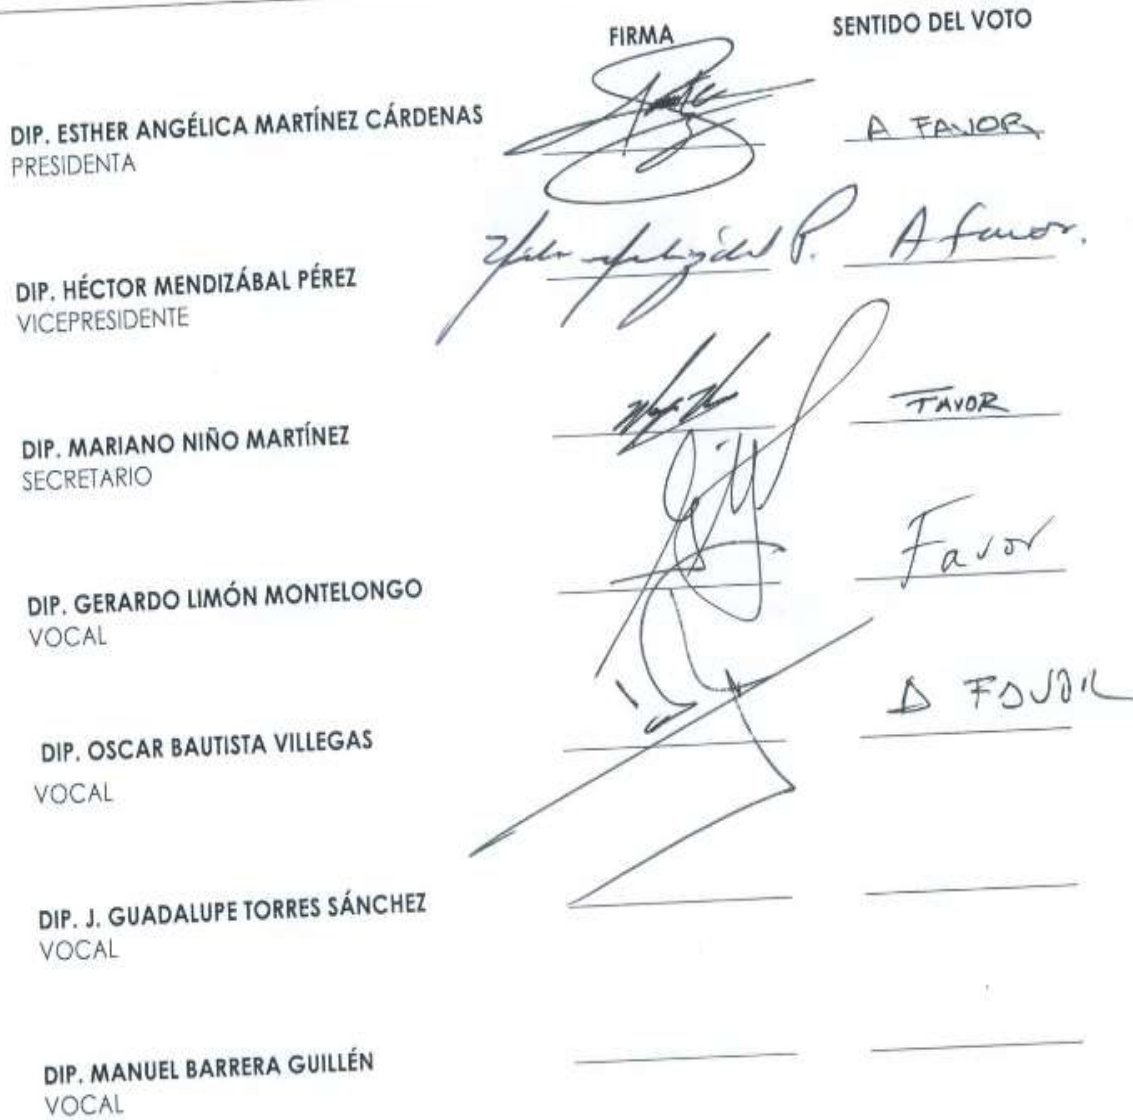 FIRMA SENTIDO DEL VOTO
DIP. ESTHER ANGÉLICA MARTÍNEZ CÁRDENAS A FAVOR
PRESIDENTA
DIP. HÉCTOR MENDIZÁBAL PÉREZ A favor.
VICEPRESIDENTE
DIP. MARIANO NIÑO MARTÍNEZ FAVOR
SECRETARIO
DIP. GERARDO LIMÓN MONTELONGO Favor
VOCAL
DIP. OSCAR BAUTISTA VILLEGAS A FAVOR
VOCAL
DIP. J. GUADALUPE TORRES SÁNCHEZ
VOCAL
DIP. MANUEL BARRERA GUILLÉN
VOCAL